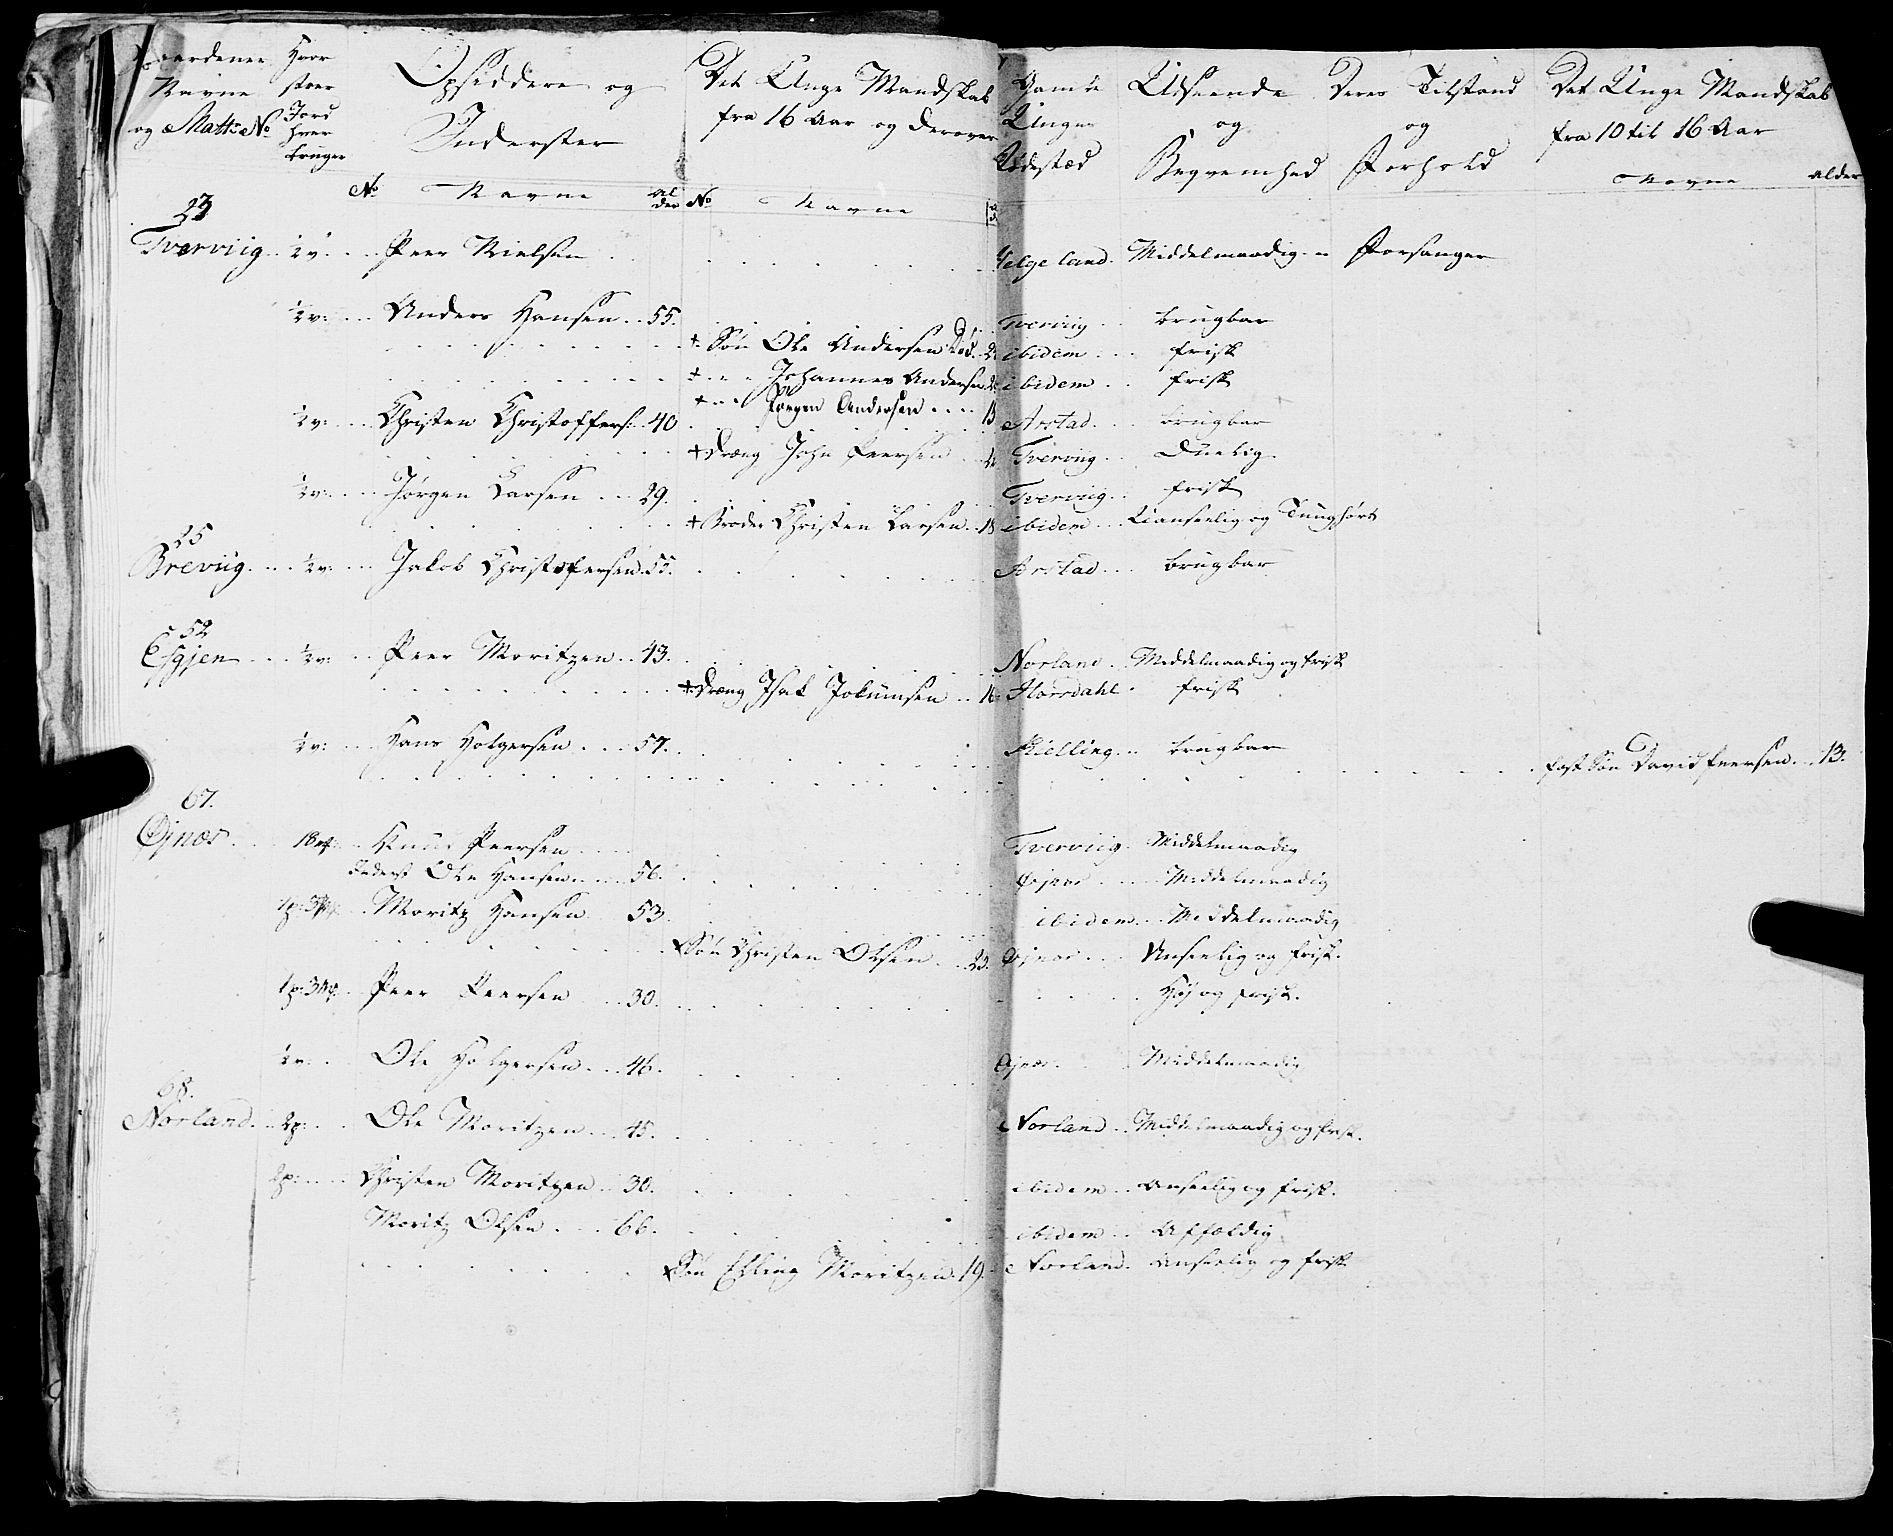 Gaardenes Navne og Matr: No
Hvor stoer Jord hver bruger
Opsiddere og Inderster
Det Unge Mandskab fra 16 Aar og derover
Gamle Unges Fødestæd
Udseende og Beqvemhed
Deres Tilstand og Forhold
Det Unge Mandskab fra 10 til 16 Aar
No Navne Alder No Navne Navne alder
23
Tverviig ½ v: Peer Nielsen Helgeland Middelmaadig Forsanger
½ v: Anders Hansen 55. Tverviig brugbar
+ Søn Ole Andersen Død ibidem frisk
+ Johannes Andersen ibidem frisk
+ Jørgen Andersen
½ v: Christen Christoffers: 40 Arstad brugbar
+ Dræng John Peersen Tverviig Duelig
½ v: Jørgen Larsen 29. Tverviig frisk
+ Broder Christen Larsen 18 ibidem Uanseelig og Tunghørt
25
Breviig ½ v: Jakob Christofersen 55. Arstad brugbar
52
Esgjen ½ v: Peer Moritzen 43. Norland Middelmaadig og frisk
+ Dræng Isak Jokumsen 16 Horsdahl frisk
½ v: Hans Holgersen 57. Kielling brugbar
fost Søn David Peersen 13.
67.
Øjnæs 18 Knud Peersen Tverviig Middelmaadig
Inderst Ole Hansen 56. Øjnæs Middelmaadig
1p: Moritz Hansen 53 ibidem Middelmaadig
Søn Christen Olsen 23. Øjnæs Anseelig og frisk.
1p: Peer Peersen 30. Høj og frisk.
½ v: Ole Holgersen 46. Øjnæs Middelmaadig
68.
Norland 2p: Ole Moritzen 45. Norland Middelmaadig og frisk.
2p: Christen Moritzen 30. ibidem Anseelig og frisk.
Moritz Olsen 66. ibidem Affældig
Søn Elling Moritzen 19. Norland Anseelig og frisk